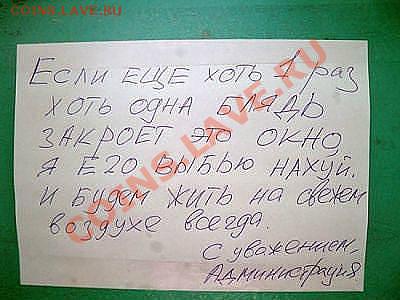 COINS.LAVE.RU
Если еще хоть 1 раз
хоть одна блядь
закроет это окно,
я его выбью нахуй.
и будем жить на свежем
воздухе всегда.
С уважением,
Администрация
COINS.LAVE.RU
COINS.LAVE.RU